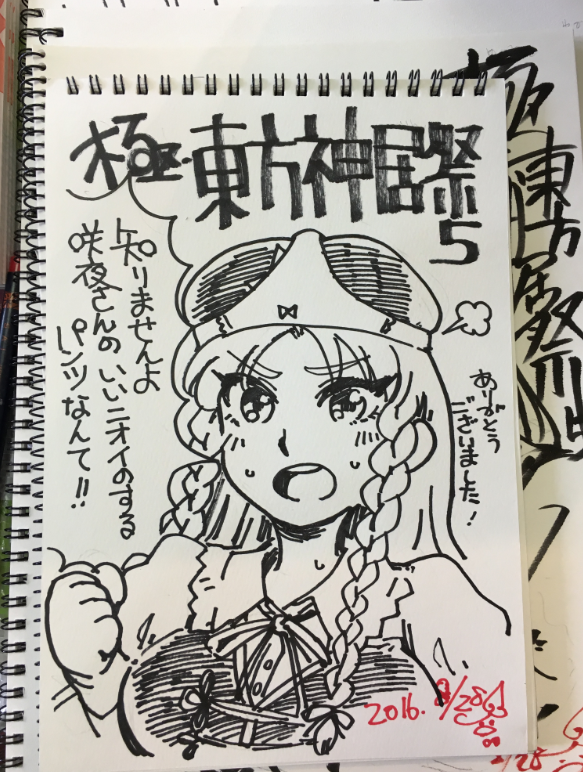 極・東方神居祭
5
知りませんよ
咲夜さんのいいニオイのする
パンツなんて!!
ありがとう
ございました!
2016.